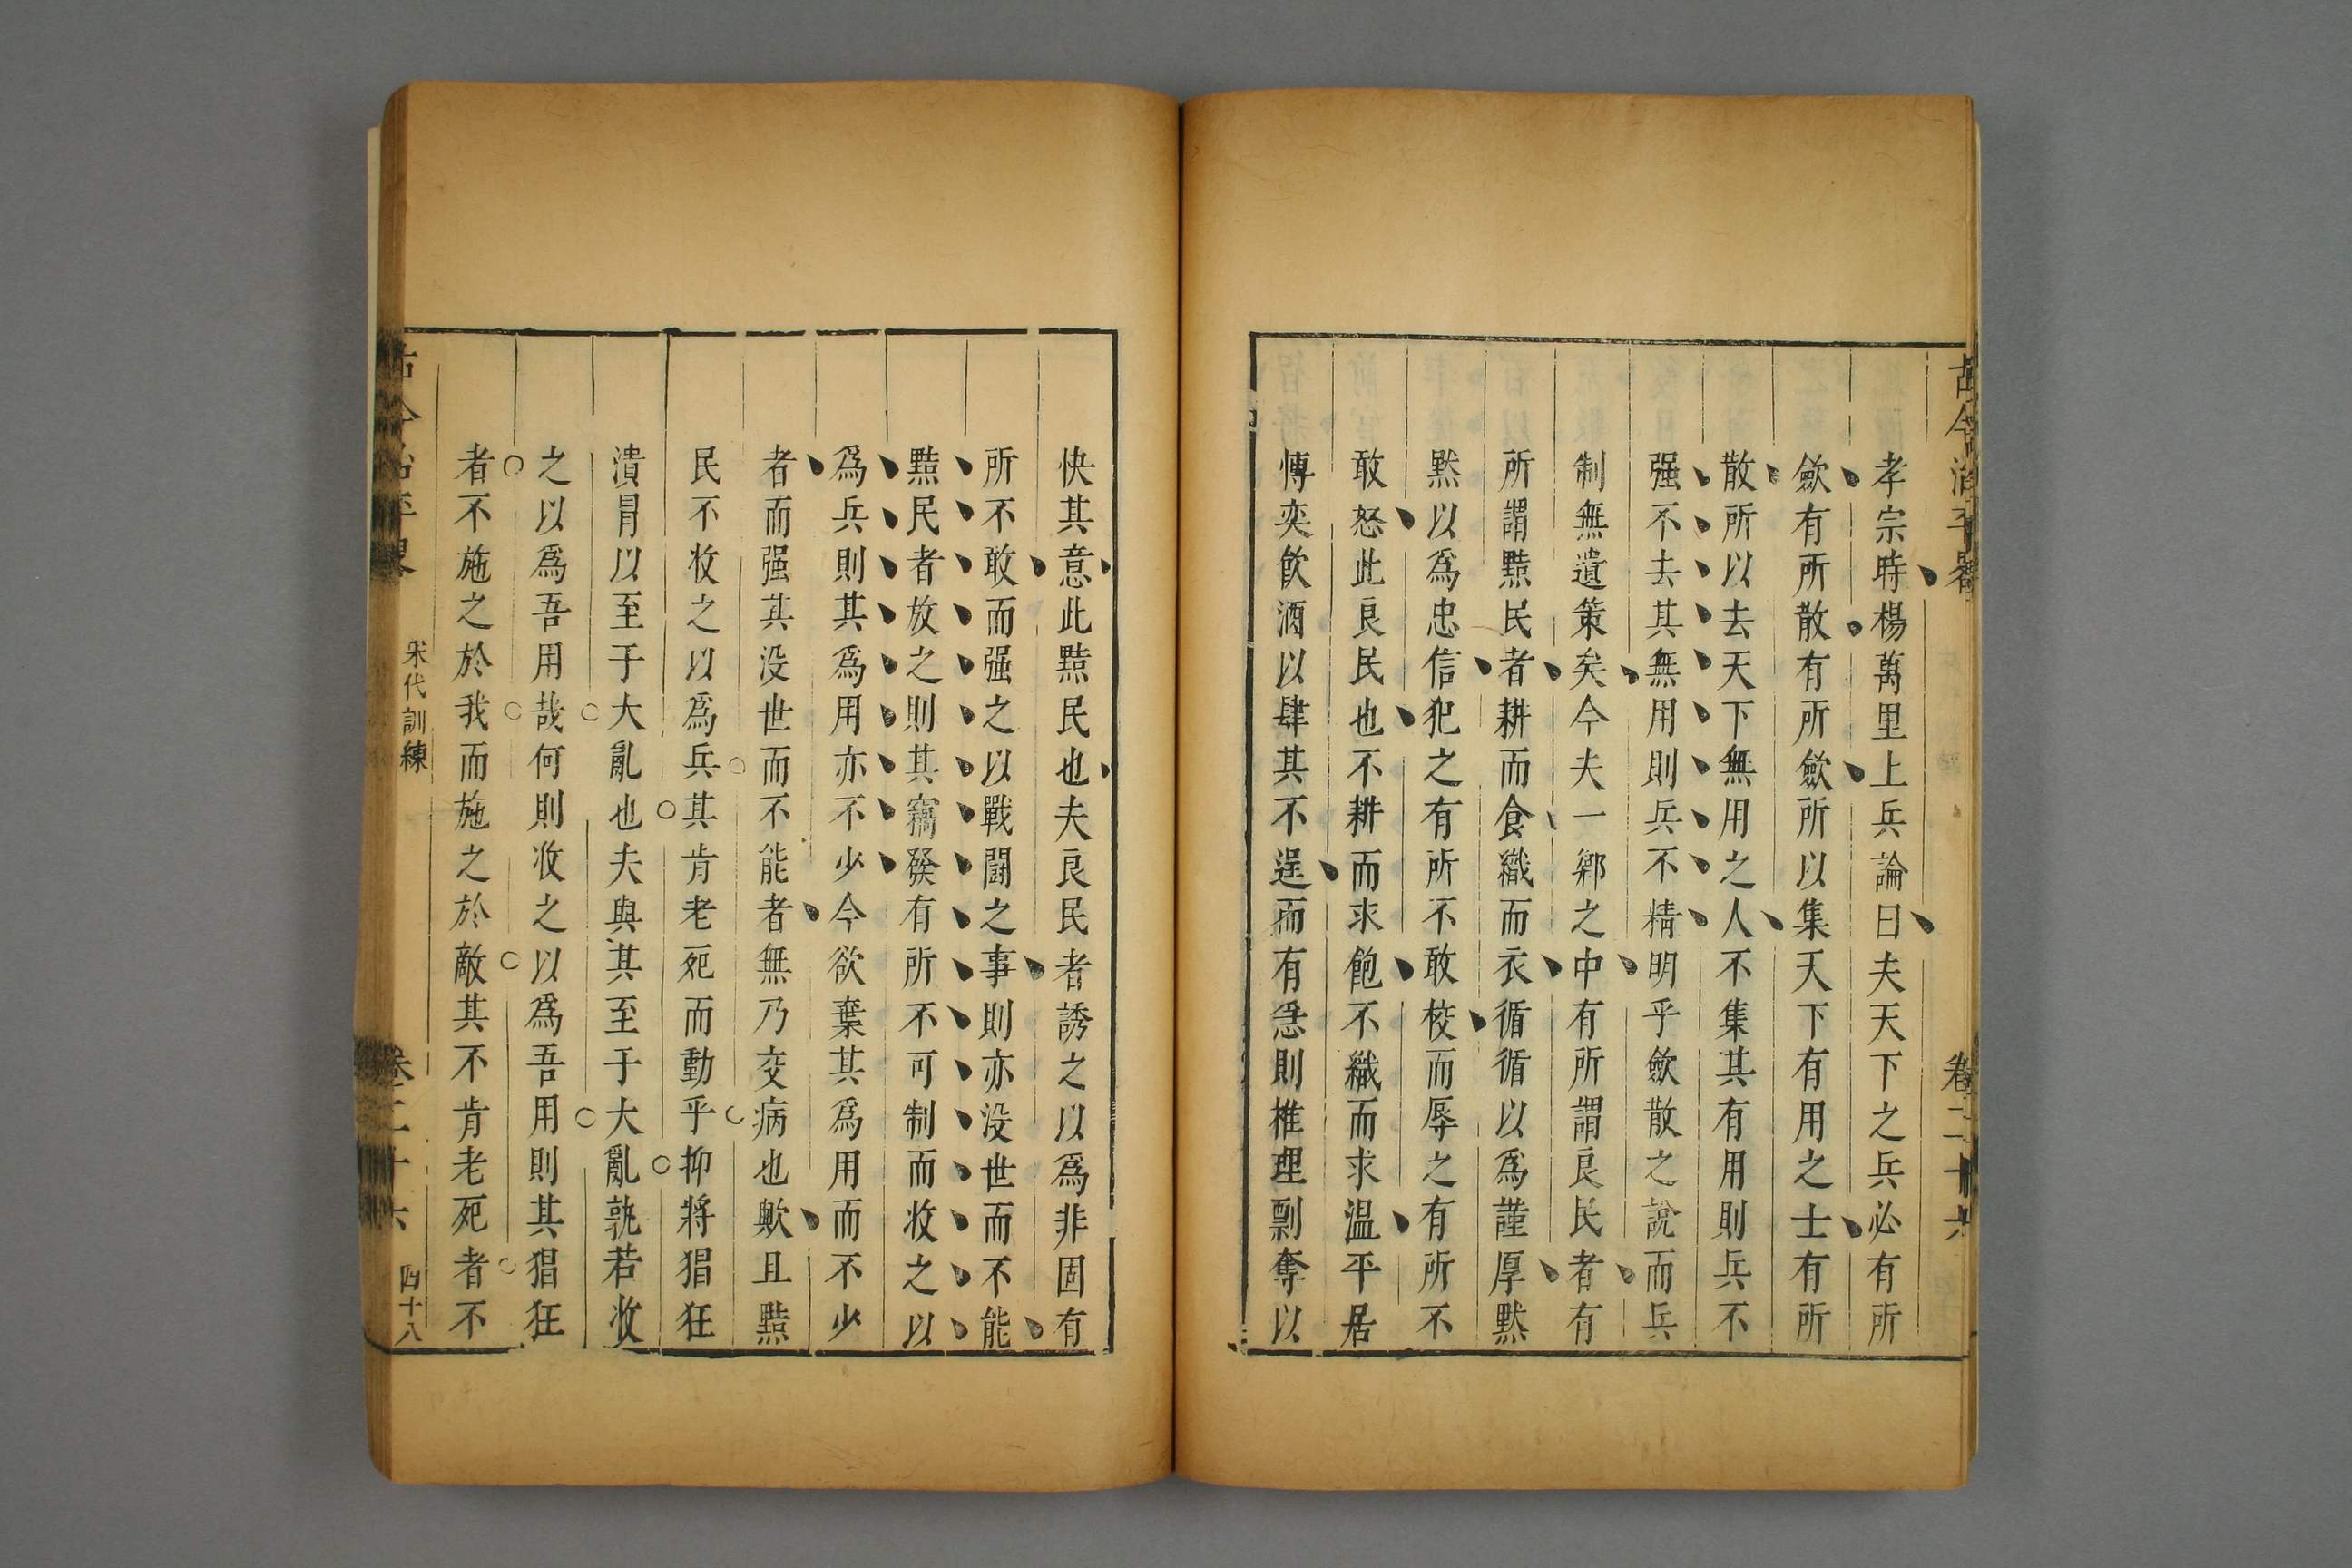 古今治平畧 卷二十六
孝宗時楊萬里上兵論曰夫天下之兵必有所
歛有所散有所歛所以集天下有用之士有所
散所以去天下無用之人不集其有用則兵不
强不去其無用則兵不精明乎歛散之說而兵
制無遺策矣今夫一鄉之中有所謂良民者有
所謂黠民者耕而食織而衣循循以為謹厚默
默以為忠信犯之有所不敢校而辱之有所不
敢怒此良民也不耕而求飽不織而求温平居
愽奕飲酒以肆其不逞而有急則椎埋剽奪以
快其意此黠民也夫良民者誘之以為非固有
所不敢而强之以戰鬭之事則亦没世而不能
黠民者放之則其竊發有所不可制而收之以
爲兵則其爲用亦不少今欲棄其爲用而不少
者而强其没世而不能者無乃交病也歟且黠
民不收之以爲兵其肯老死而動乎抑將猖狂
潰冐以至于大亂也夫與其至于大亂孰若收
之以爲吾用哉何則收之以爲吾用則其猖狂
者不施之於我而施之於敵其不肯老死者不
古今治平畧 宋代訓練 卷二十六 四十八